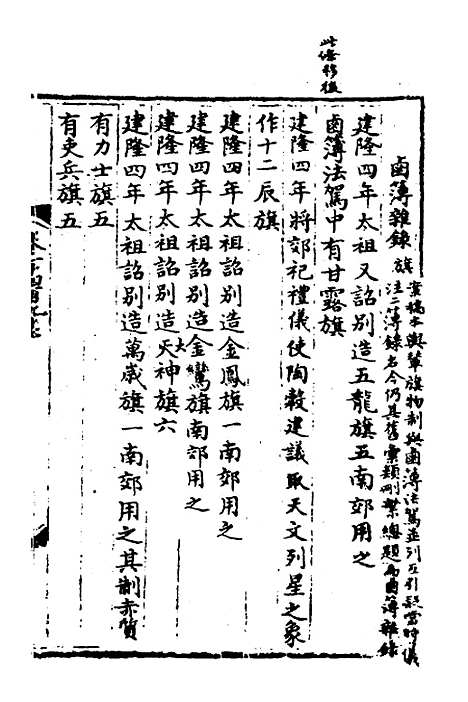 此條移後
鹵簿雜錄
旗
案稿本輿輦旗物制與鹵簿法駕並列互引疑當時儀
注二簿錄名今仍其舊彙類刪繁總題為鹵簿雜錄
建隆四年太祖又詔別造五龍旗五南郊用之
鹵簿法駕中有甘露旗
建隆四年將郊祀禮儀使陶穀建議取天文列星之象
作十二辰旗
建隆四年太祖詔別造金鳳旗一南郊用之
建隆四年太祖詔別造金鸞旗南郊用之
建隆四年太祖詔別造大神旗六
建隆四年太祖詔別造萬歲旗一南郊用之其制赤質
有力士旗五
有吏兵旗五